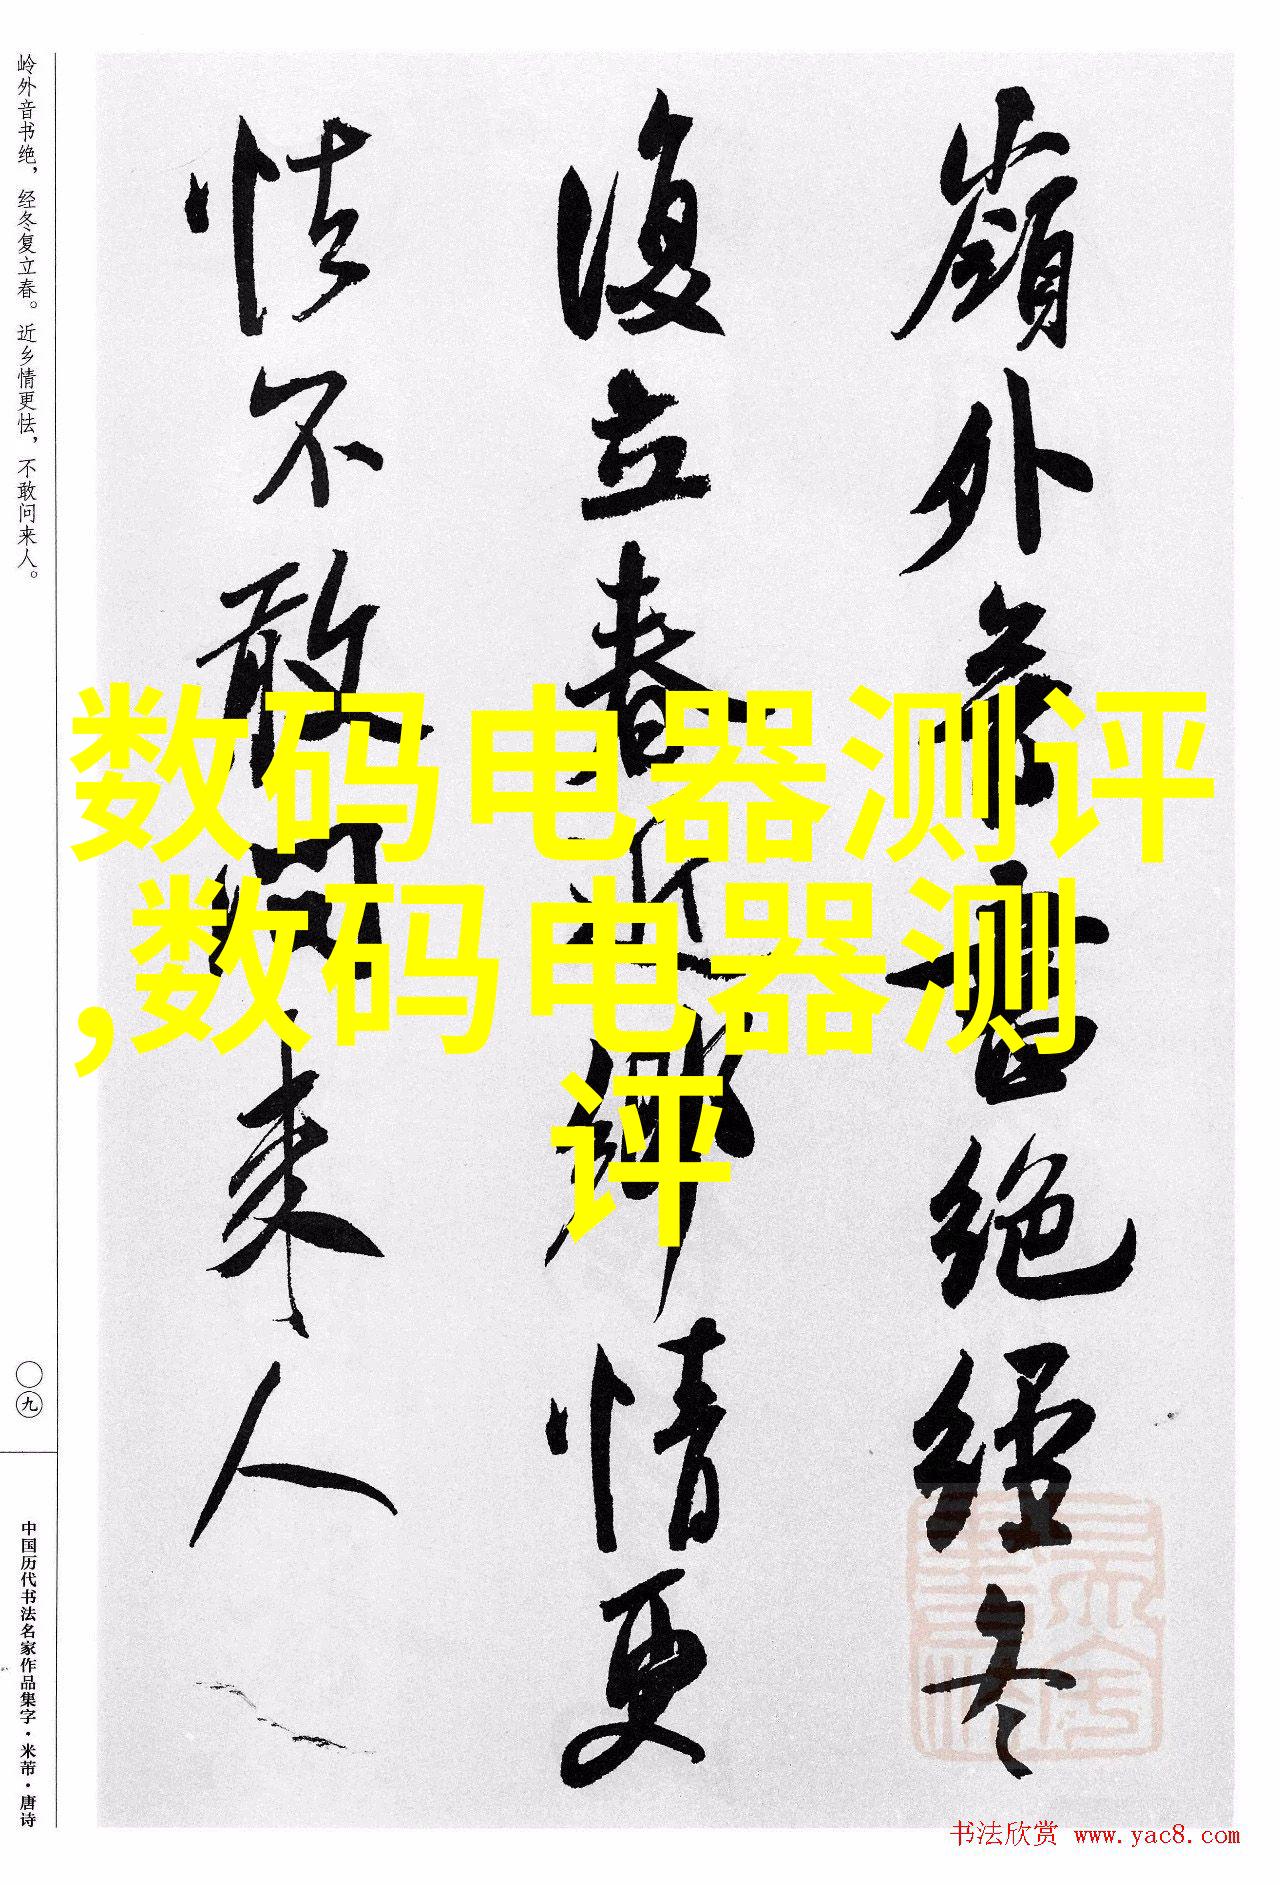 岭外音书绝，经冬复立春。近乡情更怯，不敢问来人。
嶺外音書絕經冬
復立春近鄉情更
怯不敢問來人
数码电器测评
,数码电器测
评
〇九
中国历代书法名家作品集字·米芾·唐诗
书法欣赏 www.yac8.com